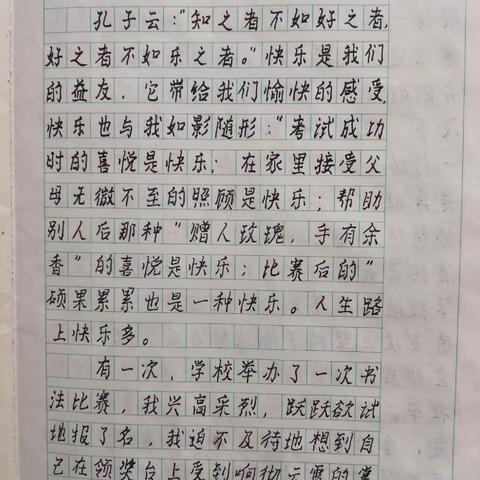 孔子云：“知之者不如好之者，
好之者不如乐之者。”快乐是我们
的益友，它带给我们愉快的感受，
快乐也与我如影随形：“考试成功
时的喜悦是快乐；在家里接受父
母无微不至的照顾是快乐；帮助
别人后那种“赠人玫瑰，手有余
香”的喜悦是快乐；比赛后的“
硕果累累也是一种快乐。人生路
上快乐多。
有一次，学校举办了一次书
法比赛，我兴高采烈，跃跃欲试
地报了名，我迫不及待地想到自
己在领奖台上受到响彻云霄的掌